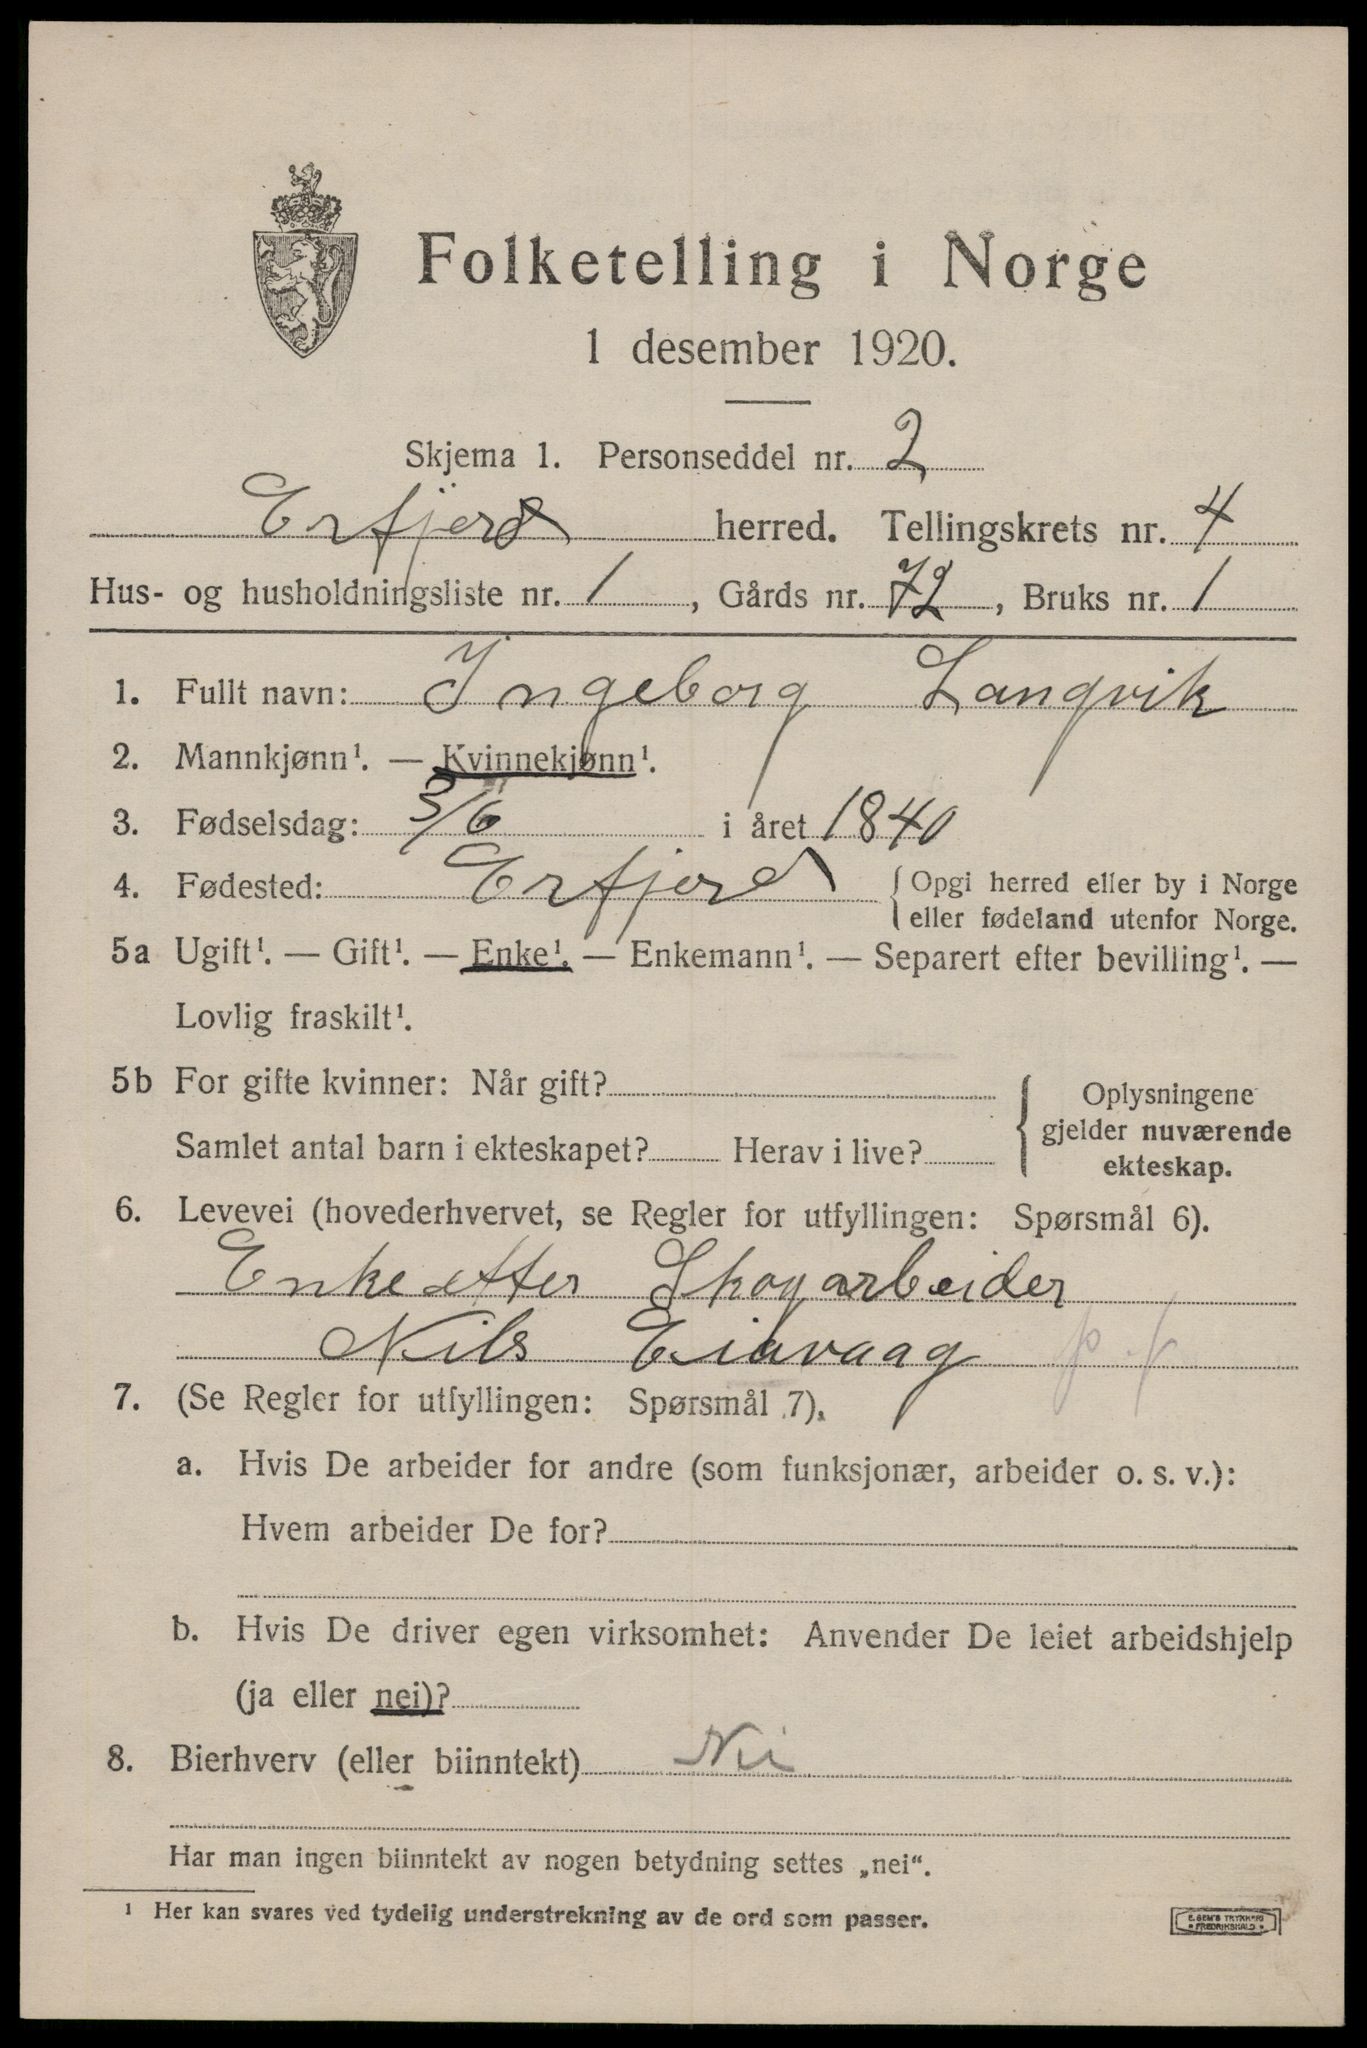 Folketelling i Norge
1 desember 1920.
Skjema 1. Personseddel nr. 2
Erfjord herred. Tellingskrets nr. 4
Hus- og husholdningsliste nr. 1, Gårds nr. 72, Bruks nr. 1
1. Fullt navn: Ingeborg Langvik
2. Mannkjønn¹. — Kvinnekjønn¹.
3. Fødselsdag: 3/6 i året 1840
4. Fødested: Erfjord { Opgi herred eller by i Norge
eller fødeland utenfor Norge.
5a Ugift¹. — Gift¹. — Enke¹. — Enkemann¹. — Separert efter bevilling¹. —
Lovlig fraskilt¹.
5b For gifte kvinner: Når gift?
Samlet antal barn i ekteskapet? Herav i live?
Oplysningene
gjelder nuværende
ekteskap.
6. Levevei (hovederhvervet, se Regler for utfyllingen: Spørsmål 6).
Enke etter Skogarbeider
Nils
7. (Se Regler for utfyllingen: Spørsmål 7).
a. Hvis De arbeider for andre (som funksjonær, arbeider o. s. v.):
Hvem arbeider De for?
b. Hvis De driver egen virksomhet: Anvender De leiet arbeidshjelp
(ja eller nei)?
8. Bierhverv (eller biinntekt) Nei
Har man ingen biinntekt av nogen betydning settes „nei“.
¹ Her kan svares ved tydelig understrekning av de ord som passer.
E. SEM'S TRYKKERI
FREDRIKSHALD